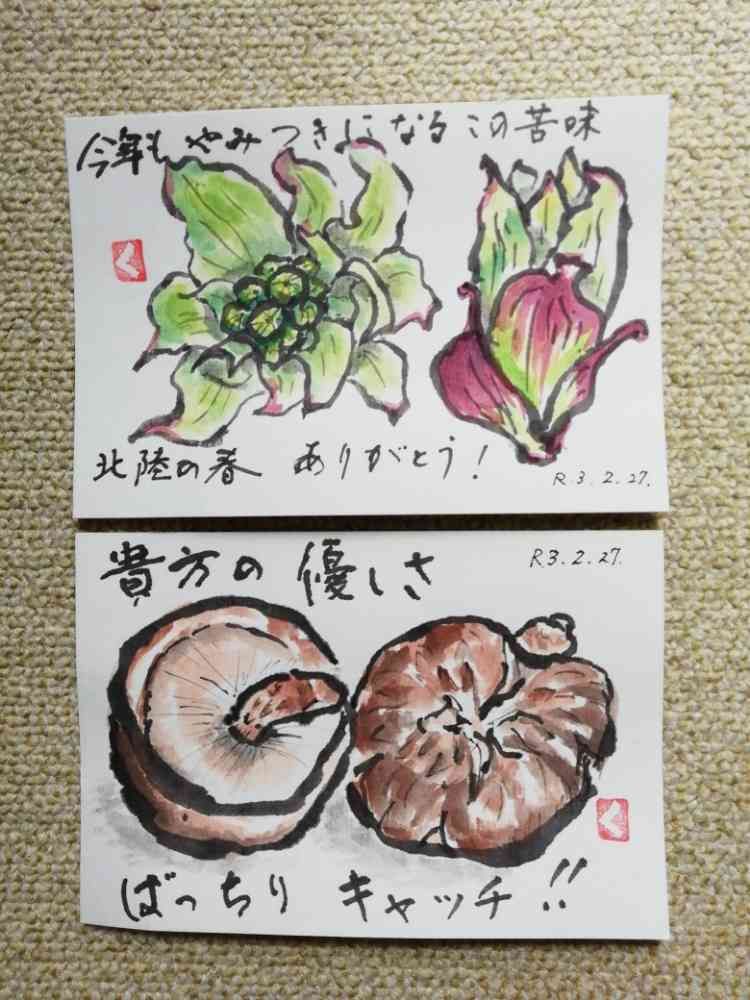 今年も やみつきになる この苦味
く
北陸の春 ありがとう!
R.3.2.27.
貴方の 優しさ
R3.2.27.
く
ばっちり キャッチ!!